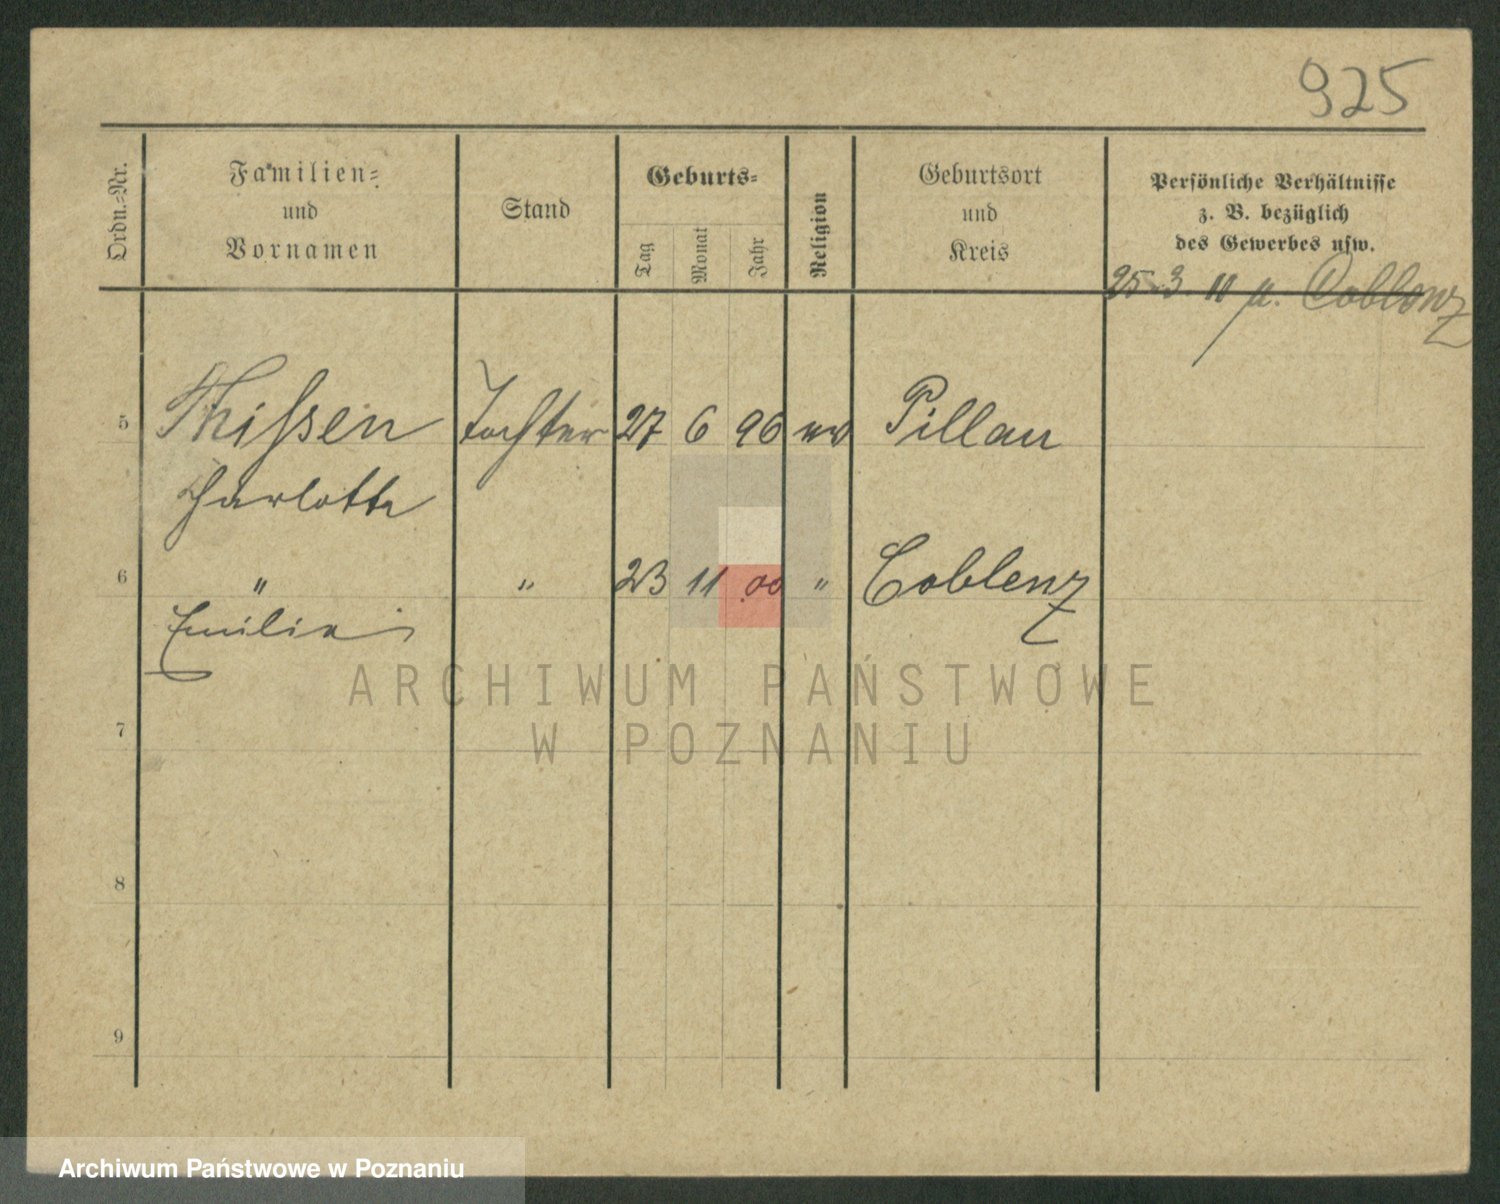 925
Ordn.-Nr.
Familien-
und
Vornamen
Stand
Geburts-
Tag
Monat
Jahr
Religion
Geburtsort
und
Kreis
Persönliche Verhältnisse
z. B. bezüglich
des Gewerbes usw.
25.3. 11 n. Coblenz
5 Thißen Tochter 27 6 96 ev Pillau
Charlotte
6 " " 23 11 00 " Coblenz
Emilie
ARCHIWUM PAŃSTWOWE
W POZNANIU
7
8
9
Archiwum Państwowe w Poznaniu